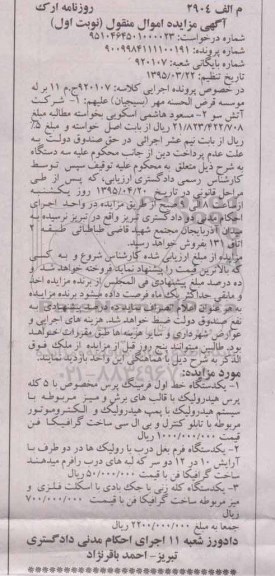 م الف ۲۹۰۴ روزنامه ارک
آگهی مزایده اموال منقول (نوبت اول)
شماره درخواست: ۹۵۱۰۴۶۴۵۰۱۰۰۰۰۳۳
شماره پرونده: ۹۰۰۹۹۸۴۱۱۱۱۰۰۱۹۱
شماره بایگانی شعبه: ۹۲۰۱۰۷
تاریخ تنظیم: ۱۳۹۵/۰۳/۲۲
در خصوص پرونده اجرایی کلاسه: ۹۲۰۱۰۷ج.م ۱۱ له
موسسه قرض الحسنه مهر (بسیجیان) علیهم: ۱- شرکت
آتش سو ۲- مسعود هاشمی اسکویی بخواسته مطالبه مبلغ
۲۱/۸۲۳/۴۲۲/۷۰۸ ریال از بابت اصل خواسته و مبلغ ۵٪
ریال از بابت نیم عشر اجرائی در حق صندوق دولت به
علت عدم پرداخت دین از جانب محکوم علیه دستگاه
به شرح ذیل متعلق به محکوم علیه توقیف سپس توسط
کارشناس رسمی دادگستری ارزیابی، که پس از طی
مراحل قانونی در تاریخ ۱۳۹۵/۰۴/۲۰ روز یکشنبه
از ساعت ۸ الی ۹ صبح از طریق مزایده در واحد اجرای
احکام مدنی دادگستری تبریز واقع در تبریز نرسیده به
میدان آذربایجان مجتمع شهید قاضی طباطبائی طبقه ۲
اتاق ۱۳۱ بفروش خواهد رسید.
مزایده از مبلغ ارزیابی شده کارشناس شروع و به کسی
که بالاترین قیمت را پیشنهاد نماید فروخته خواهد شد و
ده درصد مبلغ پیشنهادی فی المجلس از برنده مزایده اخذ
و مابقی حداکثر یک ماه فرصت داده میشود برنده مزایده
به هر عنوان اعلام انصراف نماید ده درصد پیشنهادی به
نفع صندوق دولت ضبط خواهد شد. هزینه های اجرایی و
عوارض شهرداری و سایر هزینه ها طبق مقررات خواهد
بود طالبین میتوانند پنج روز قبل از مزایده از ملک فوق
الذکر به شرح ذیل با هماهنگی این واحد بازدید نمایند.
مورد مزایده:
۱- یکدستگاه خط اول فرمینگ پرس مخصوص با ۵ کله
پرس هیدرولیک با قالب های برش و میز مربوطه با
سیستم هیدرولیک با پمپ هیدرولیک و الکتروموتور
مربوطه با تابلو کنترل و پی ال سی ساخت گرافیکا فن
قیمت ۱۰۰۰/۰۰۰/۰۰۰ ریال
۲- یکدستگاه فرم بغل درب با رولیک ها در دو طرف با
آرایش ۱۰ در ۱۲ دو سر که لبه های درب رافرم میدهند
ساخت گرافیکا فن با قیمت ۵۰۰/۰۰۰/۰۰۰ ریال
۳- یکدستگاه کله زنی با جک بادی با اسکلت فلزی و
میز مربوطه ساخت گرافیکا فن با قیمت ۷۰۰/۰۰۰/۰۰۰
ریال
جمعا به مبلغ ۲۲۰۰/۰۰۰/۰۰۰ ریال
دادورز شعبه ۱۱ اجرای احکام مدنی دادگستری
تبریز- احمد باقرنژاد